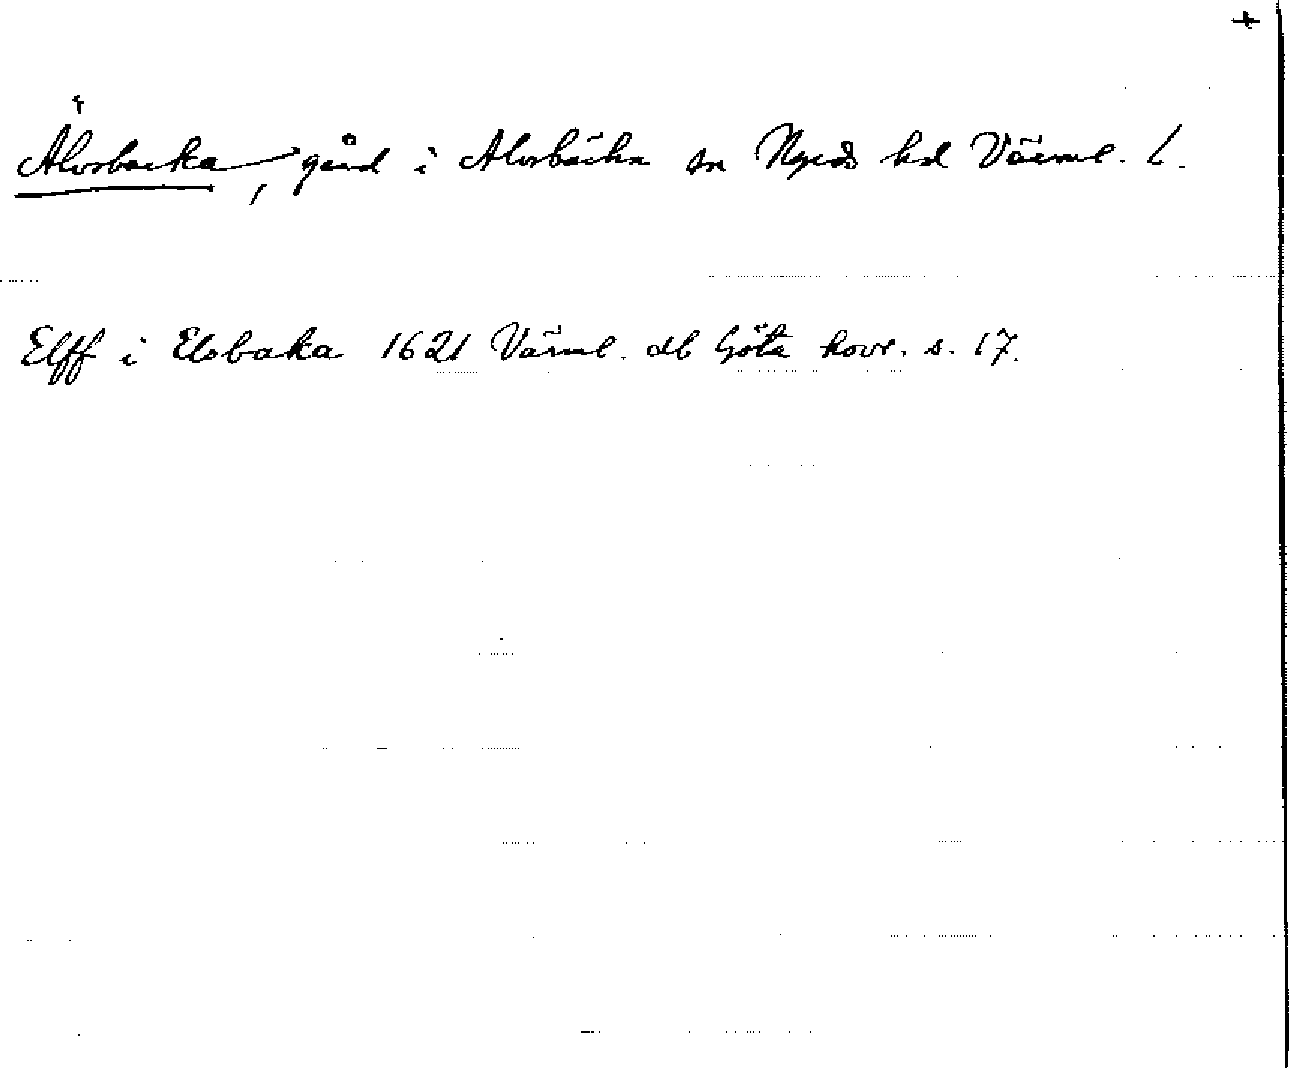 +
Alvsbacka, gård i Alvsbacka sn Nyeds hd Värml. l.
Elff i Elsbaka 1621 Värml. db Göta hovr. s. 17.